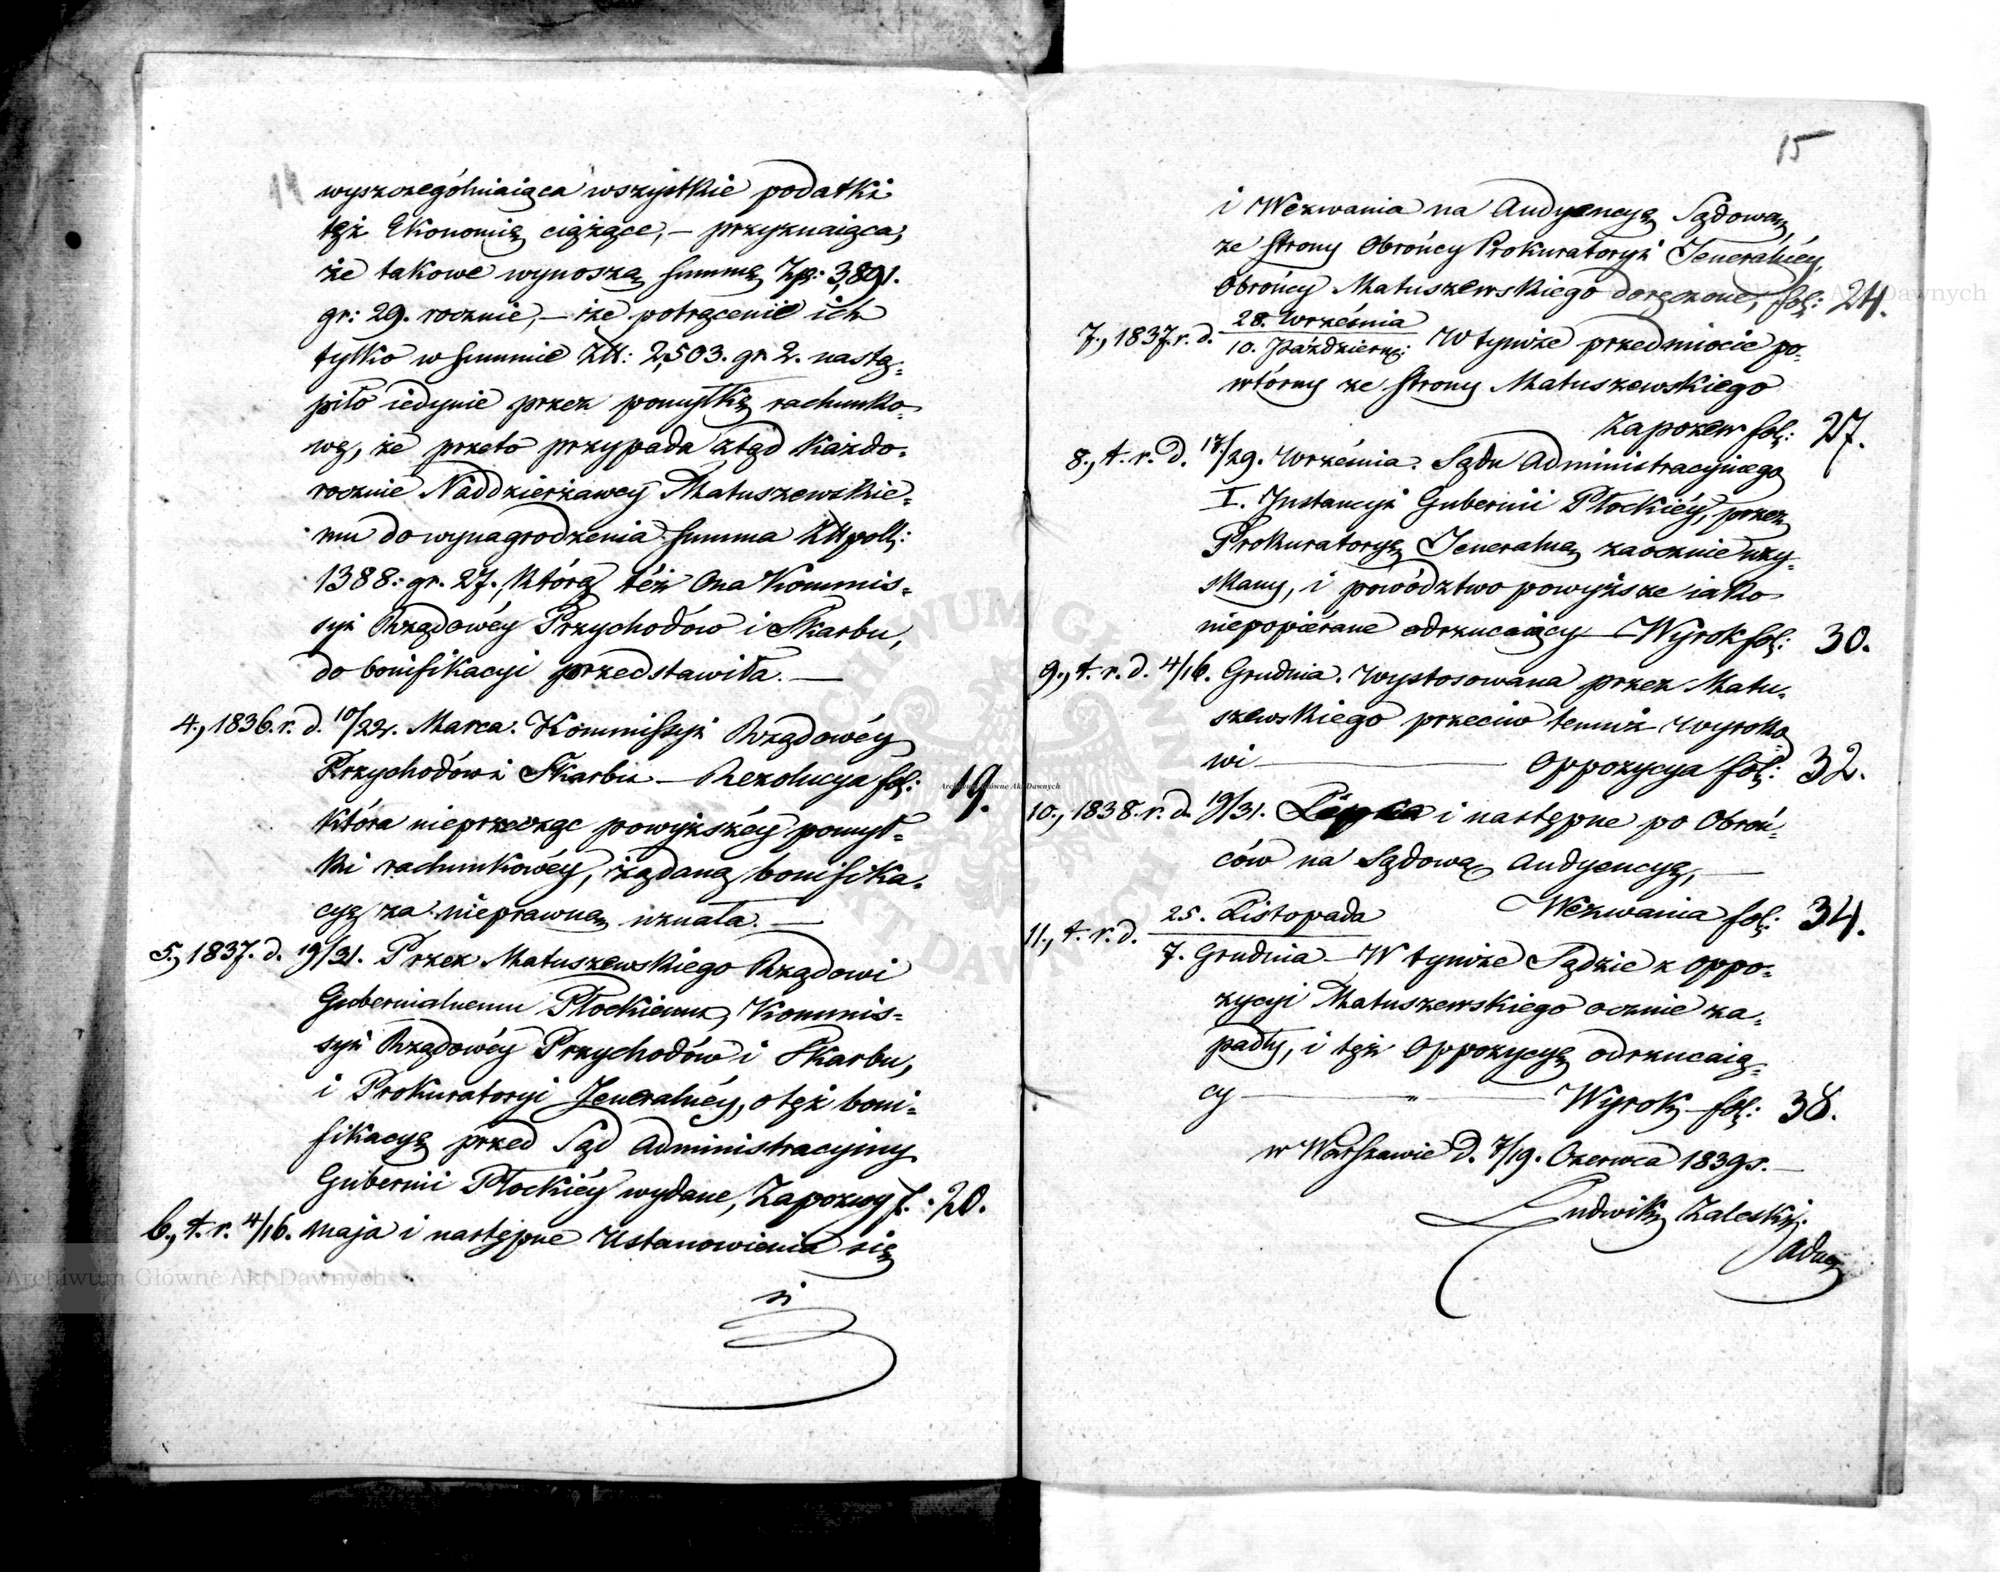 14
wyszczególniaiąca wszystkie podatki
tęż Ekonomię ciążące, — przyznaiąca,
że takowe wynoszą summę Zp: 3,891.
gr: 29. rocznie, — że potrącenie ich
tylko w summie Złł: 2,503. gr. 2. nastą-
piło iedynie przez pomyłkę rachunko-
wę, że przeto przypada ztąd każdo-
rocznie Naddzierżawcy Matuszewskie-
mu do wynagrodzenia summa Złł poll:
1388: gr. 27., którą też Ona Kommis-
syi Rządowéy Przychodów i Skarbu,
do bonifikacyi przedstawiła. —
4., 1836. r. d. 10/22. Marca. Kommissyi Rządowéy
Przychodów i Skarbu — Rezolucya fol: 19.
która nieprzecząc powyższéy pomył-
ki rachunkowéy, żądaną bonifika-
cyę za nieprawną uznała. —
5., 1837. d. 19/31. Przez Matuszewskiego Rządowi
Gubernialnemu Płockiemu, Kommis-
syi Rządowéy Przychodów i Skarbu,
i Prokuratoryi Jeneralnéy, o tęż boni-
fikacyę przed Sąd Administracyiny
Gubernii Płockiéy wydane, Zapozwy f. : 20.
6., t. r. 4/16. Maja i następne Ustanowienia się
si
15
i Wezwania na Audyencyę Sądową,
ze strony Obrońcy Prokuratoryi Jeneralnéy,
Obrońcy Matuszewskiego doręczone, fol: 24.
7., 1837. r. d. 28. Września / 10. Październ: W tymże przedmiocie po-
wtórny ze strony Matuszewskiego
Zapozew fol: 27.
8., t. r. d. 17/29. Września. Sądu Administracyinego
I. Instancyi Gubernii Płockiéy, przez
Prokuratoryę Jeneralną zaocznie uzy-
skany, i powództwo powyższe iako
niepopiérane odrzucaiący — Wyrok fol: 30.
9., t. r. d. 4/16. Grudnia. Wystosowana przez Matu-
szewskiego przeciw temuż Wyroko
wi — Oppozycya fol: 32.
10., 1838. r. d. 19/31. Lipca i następne po Obroń-
ców na Sądową Audyencyę, —
Wezwania fol: 34.
11., t. r. d. 25. Listopada / 7. Grudnia — W tymże Sądzie z oppo-
zycyi Matuszewskiego ocznie za-
padły, i tęż Oppozycyę odrzucaią-
cy — " — Wyrok fol: 38.
w Warszawie d. 7/19. Czerwca 1839 r. —
Ludwik Zaleski.
Archiwum Główne Akt Dawnych
Archiwum Główne Akt Dawnych